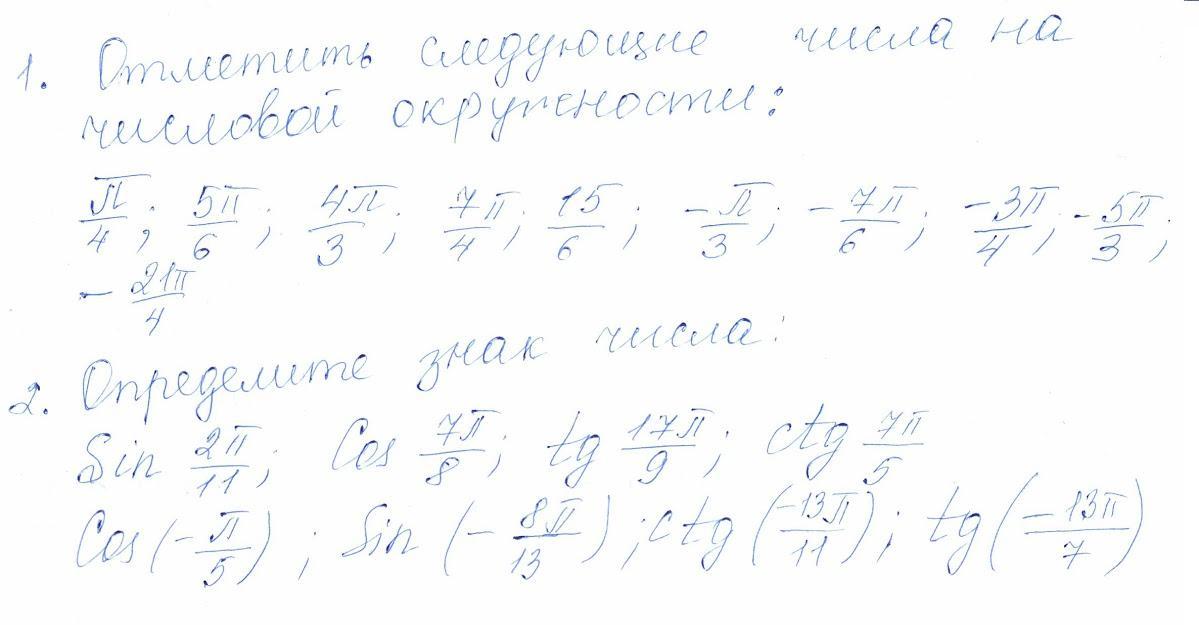 1. Отметить следующие числа на
числовой окружности:
π/4; 5π/6; 4π/3; 7π/4; 15/6; -π/3; -7π/6; -3π/4; -5π/3;
- 21π/4
2. Определите знак числа:
Sin 2π/11; Cos 7π/8; tg 17π/9; ctg 7π/5
Cos(-π/5); Sin(-8π/13); ctg(-13π/11); tg(-13π/7)